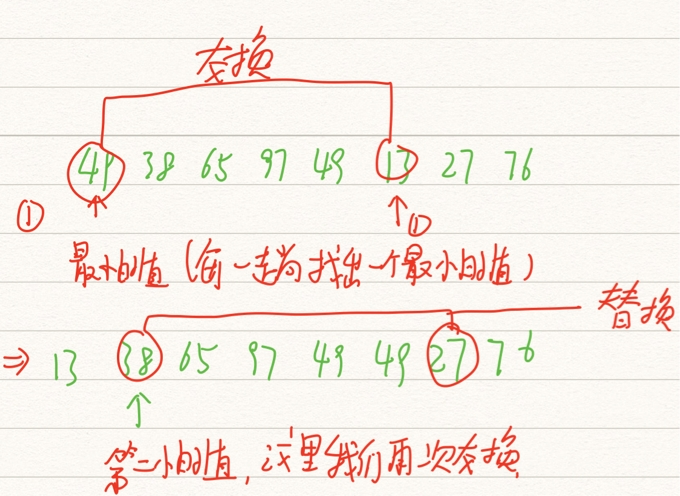 交换
49 38 65 97 49 13 27 76
① ①
最小的值(每一趟找出一个最小的值)
替换
⇒ 13 38 65 97 49 49 27 76
第二小的值,这里我们再次交换